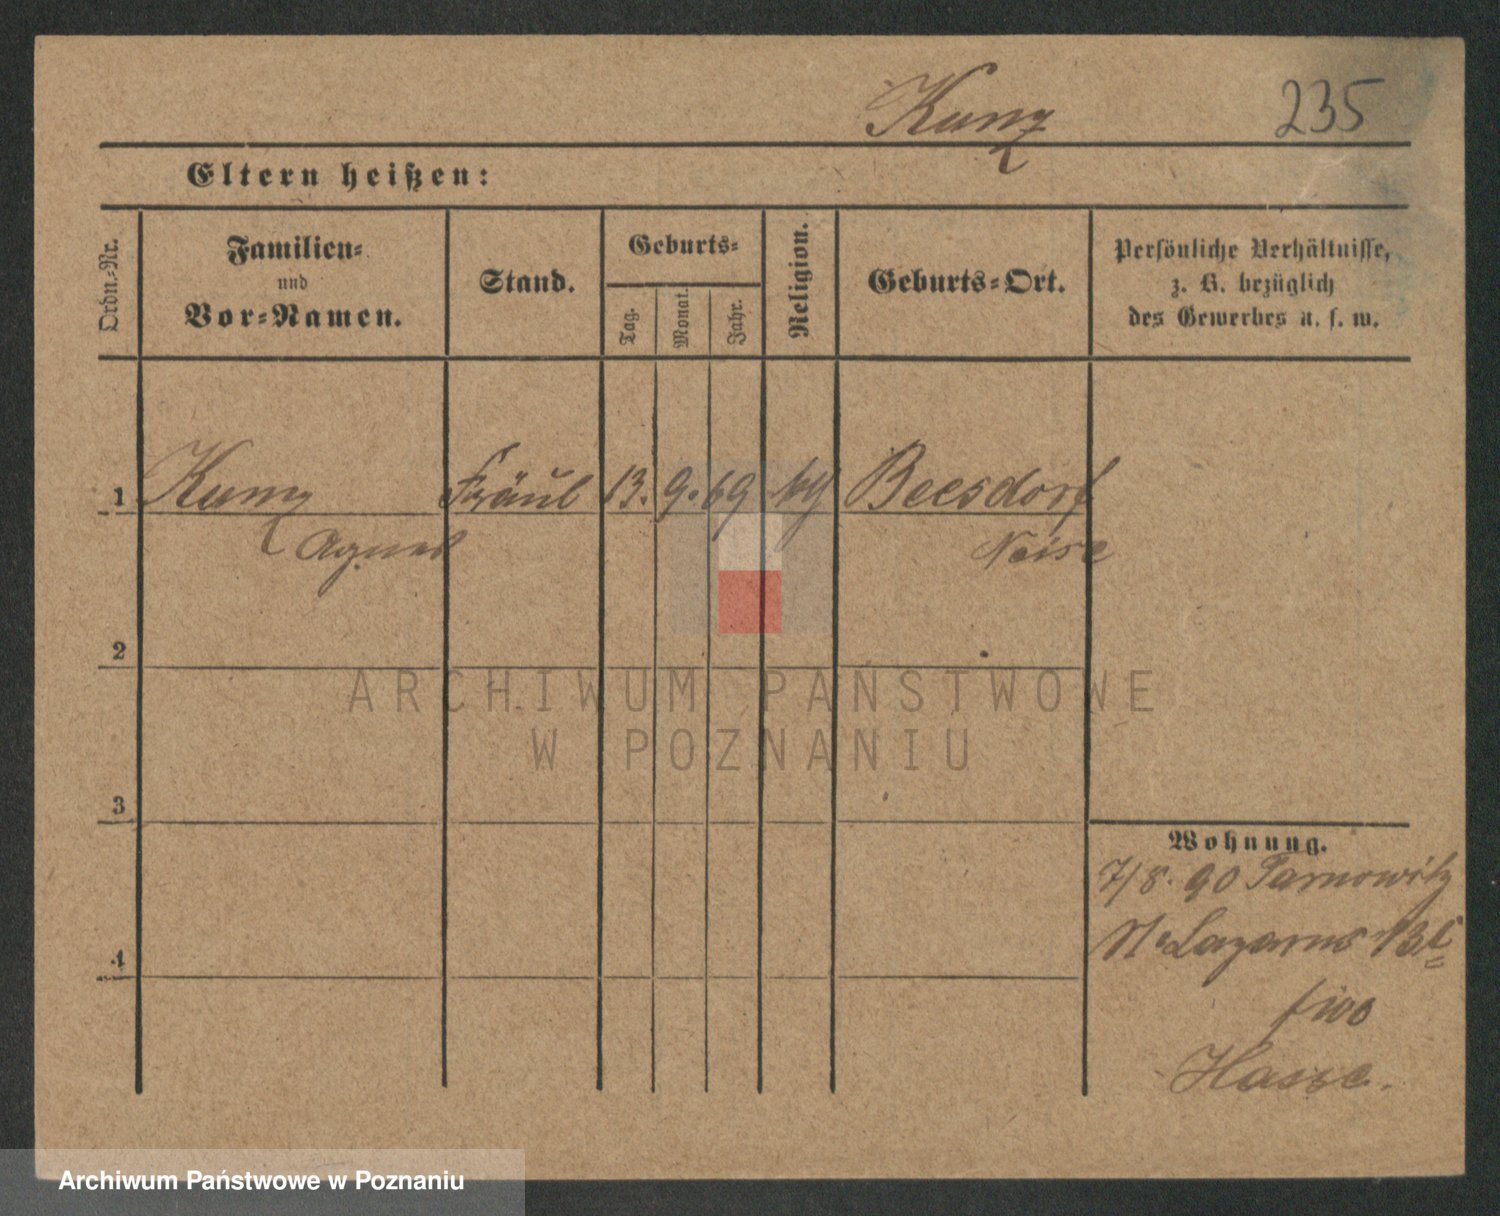 Kunz
235
Eltern heißen:
Ordn.-Nr.
Familien-
und
Vor-Namen.
Stand.
Geburts-
Tag.
Monat.
Jahr.
Religion.
Geburts-Ort.
Persönliche Verhältnisse,
z. B. bezüglich
des Gewerbes u. s. w.
1 Kunz Fräul 13. 9. 69 Beesdorf
Agnes Neise
2
ARCHIWUM PAŃSTWOWE
W POZNANIU
3
Wohnung.
7/8. 90 Tarnowitz
St Lazarus
4
Hasse.
Archiwum Państwowe w Poznaniu